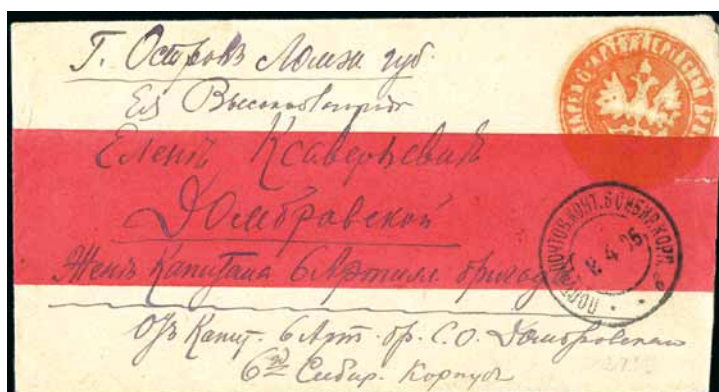 Г. Островъ Ломж. губ.
Ея Высокоблагород
Еленѣ Ксаверьевнѣ
Домбровской
Женѣ Капитана 6 Артилл. бригады
Отъ Капит. 6 Арт. бр. С. О. Домбровскаго
6го Сибир. Корпуса
ПОЧТОВ. КОНТ. 6 СИБИР. КОРП.
4 05